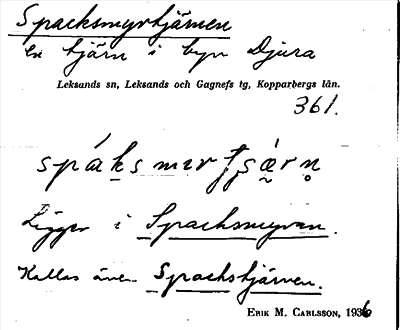 Spacksmyrtjärnen
en tjärn i byn Djura
Leksands sn, Leksands och Gagnefs tg, Kopparbergs län.
361.
Ligger i Spacksmyran.
Kallas även Spackstjärnen.
ERIK M. CARLSSON, 1936